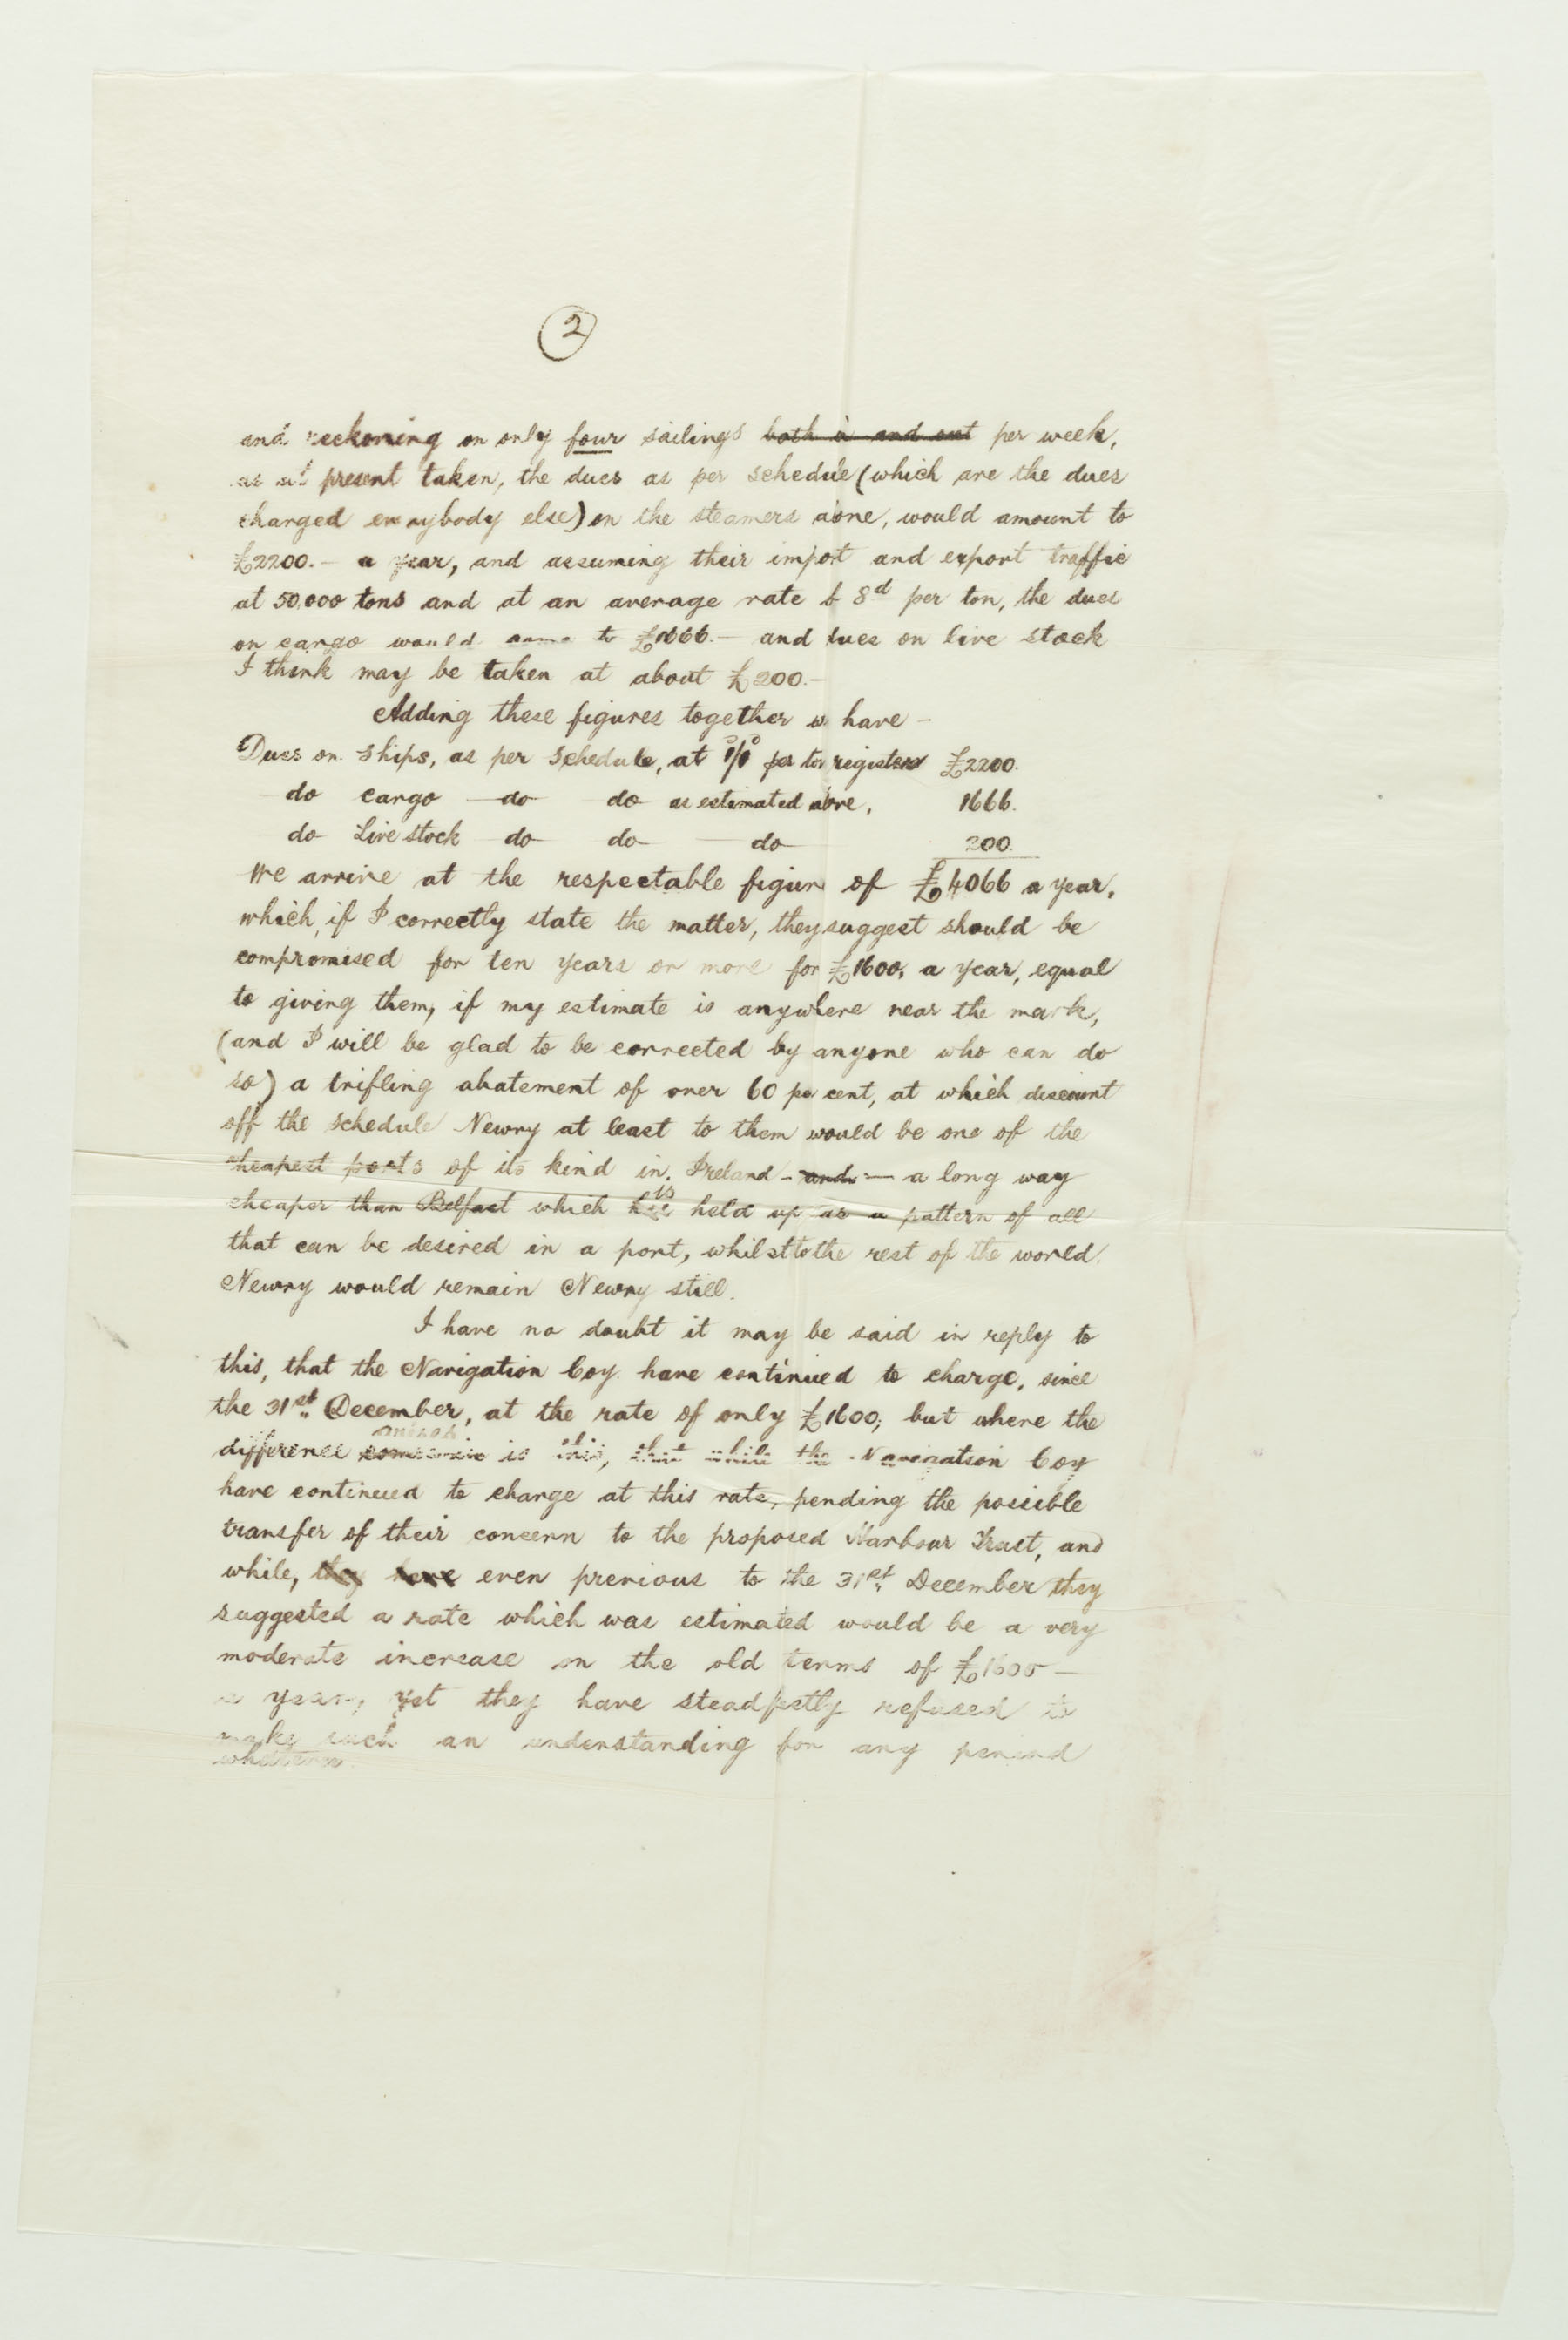 2
and reckoning on only four sailings both in and out per week,
as at present taken, the dues as per schedule (which are the dues
charged everybody else) on the steamers alone, would amount to
£2200.– a year, and assuming their import and export traffic
at 50,000 tons and at an average rate of 8d per ton, the dues
on cargo would come to £1666.– and dues on live stock
I think may be taken at about £200.–
Adding these figures together we have –
Dues on Ships, as per schedule, at per ton register £2200.
do cargo do do as estimated above, 1666.
do Live stock do do do 200.
We arrive at the respectable figure of £4066 a year,
which, if I correctly state the matter, they suggest should be
compromised for ten years or more for £1600, a year, equal
to giving them, if my estimate is anywhere near the mark,
(and I will be glad to be corrected by anyone who can do
so) a trifling abatement of over 60 per cent, at which discount
off the schedule Newry at least to them would be one of the
cheapest ports of its kind in Ireland – and – a long way
cheaper than Belfast which is held up as a pattern of all
that can be desired in a port, whilst to the rest of the world
Newry would remain Newry still.
I have no doubt it may be said in reply to
this, that the Navigation Coy. have continued to charge, since
the 31st December, at the rate of only £1600; but where the
difference arises is this, that while the Navigation Coy
have continued to charge at this rate, pending the possible
transfer of their concern to the proposed Harbour Trust, and
while, they have even previous to the 31st December they
suggested a rate which was estimated would be a very
moderate increase on the old terms of £1600 –
a year, yet they have steadfastly refused to
make such an understanding for any period
whatever.